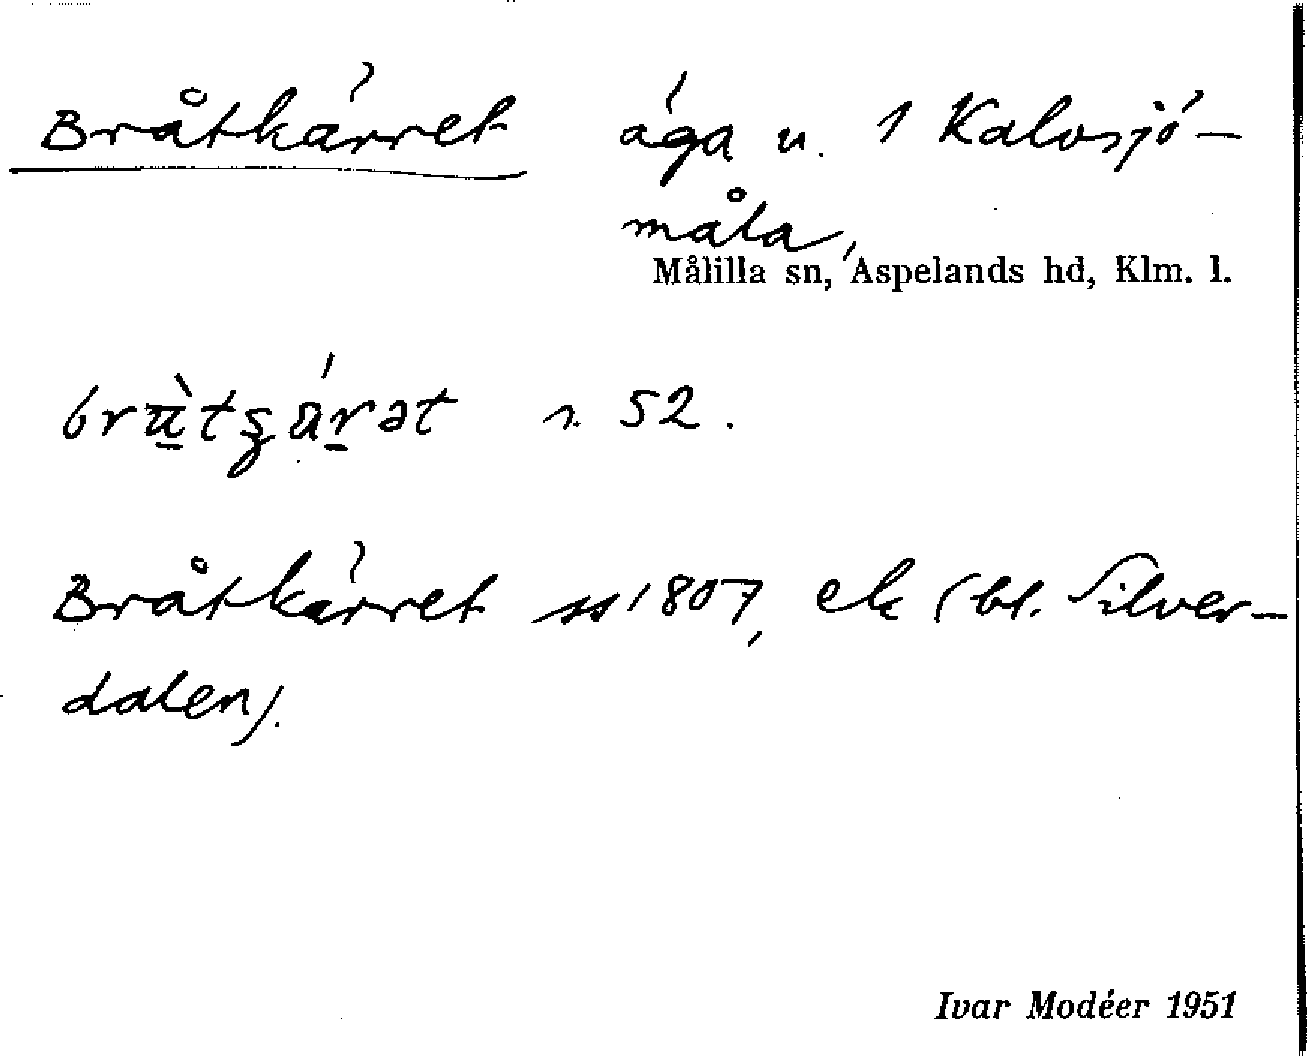 Bråtkärret äga u. 1 Kalvsjö-
måla,
Målilla sn, Aspelands hd, Klm. l.
52.
Bråtkärret ss 1807, ek (bl. Silver-
dalen).
Ivar Modéer 1951